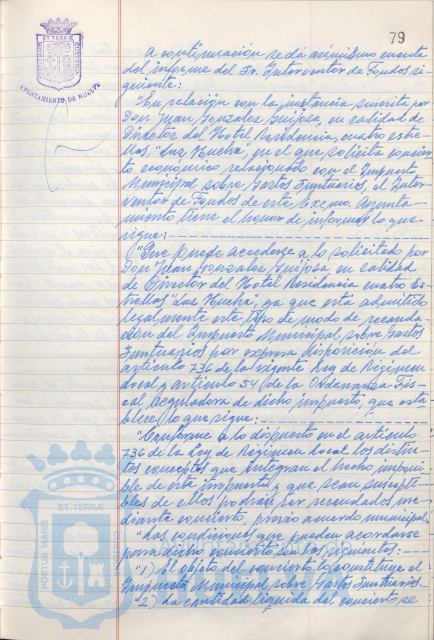 79
AYUNTAMIENTO DE HUELVA
A continuación se da asimismo cuenta
del informe del Sr. Interventor de Fondos si-
guiente:
"En relación con la instancia suscrita por
Don Juan Gonzalez Guijosa, en calidad de
Director del Hotel Residencia, cuatro estre-
llas, "Luz Huelva", en el que solicita concier-
to económico relacionado con el Impuesto
Municipal sobre Gastos Suntuarios, el Inter-
ventor de Fondos de este Excmo. Ayunta-
miento, tiene el honor de informar lo que
sigue:
"Que puede accederse a lo solicitado por
Don Juan Gonzalez Guijosa en calidad
de Director del Hotel Residencia cuatro Es-
trellas "Luz Huelva", ya que está admitido
legalmente este tipo de modo de recauda-
ción del Impuesto Municipal, sobre Gastos
Suntuarios por expresa disposición del
artículo 736 de la vigente Ley de Regimen
Local y artículo 54 de la Ordenanza Fis-
cal, reguladora de dicho impuesto, que esta-
blece lo que sigue:
"Conforme a lo dispuesto en el artículo
736 de la Ley de Regimen Local los distin-
tos conceptos que integran el hecho imponi-
ble de este impuesto y que sean suscepti-
bles de ellos podrán ser recaudados me-
diante concierto, previo acuerdo municipal."
"Las condiciones que pueden acordarse
para dicho concierto son las siguientes:
"1) El objeto del concierto lo constituye el
Impuesto Municipal sobre Gastos Suntuarios.
"2) La cantidad líquida del concierto se
ET TERRÆ
PORTUS MARIS
CUSTODIA